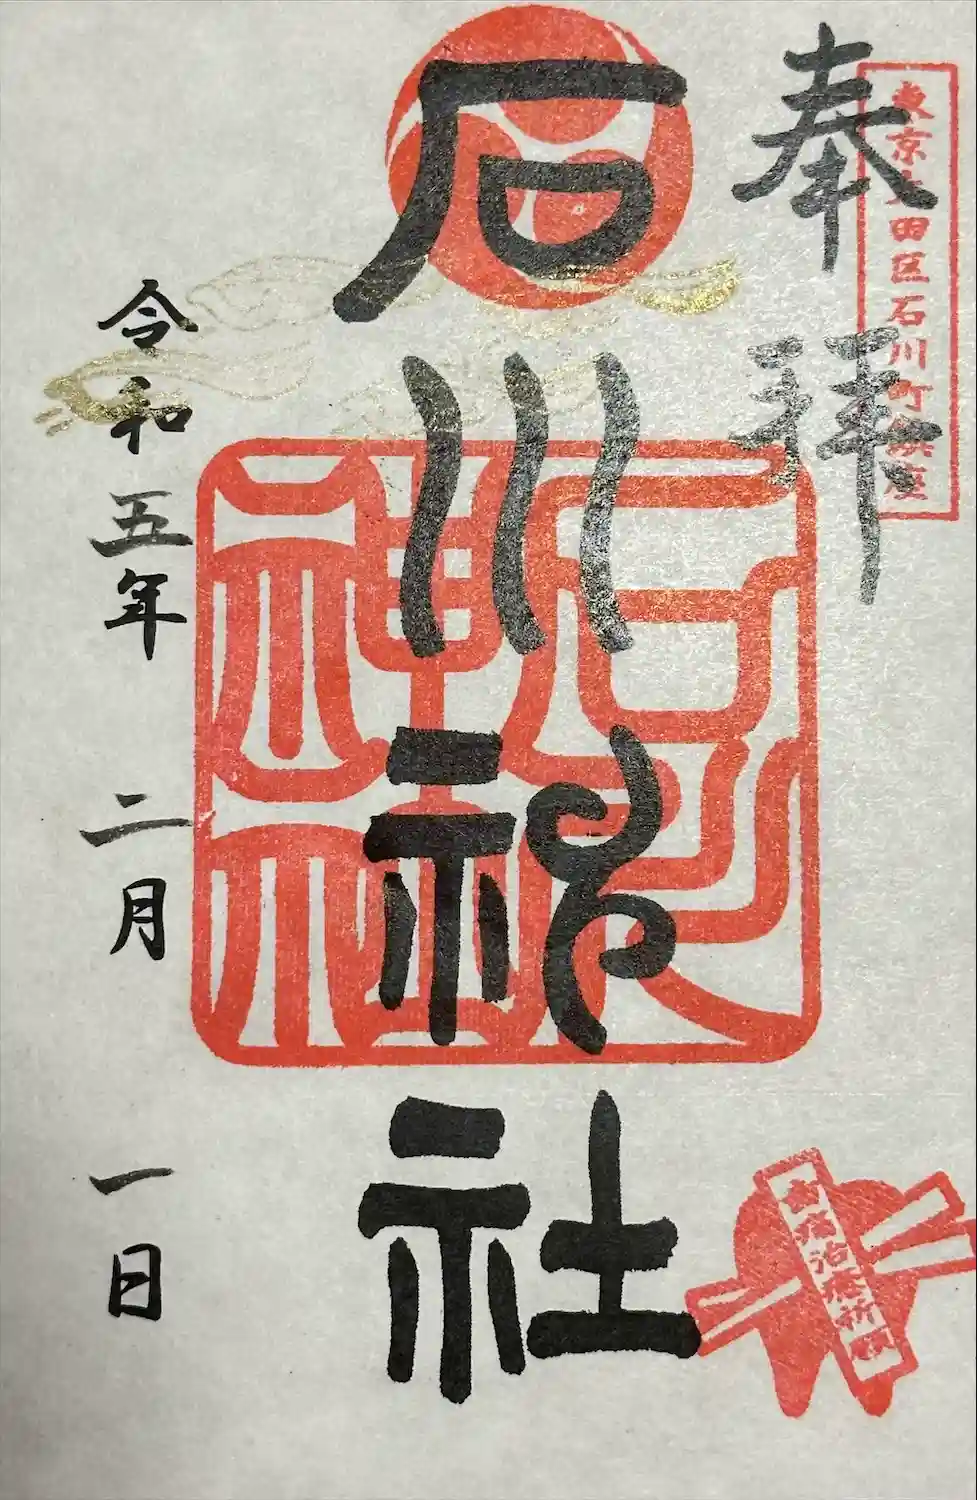 東京大田区石川町鎮座
奉拝
石川神社
石川
神社
令和五年 二月 一日
治癒祈願